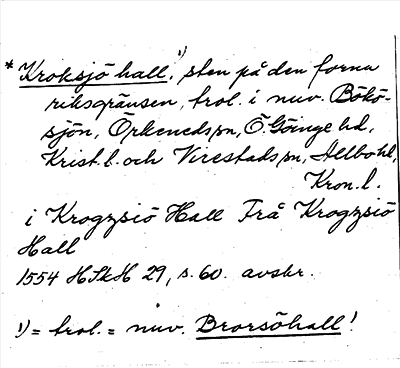 * Kroksjö hall,¹) sten på den forna
riksgränsen, trol. i nuv. Bökö-
sjön, Örkeneds sn, Ö. Göinge hd,
Krist. l. och Virestads sn, Allbo hd,
Kron. l.
i Krogzsiö Hall Frå Krogzsiö
Hall
1554 HSkH 29, s. 60. avskr.
¹) = trol. = nuv. Brorsöhall!